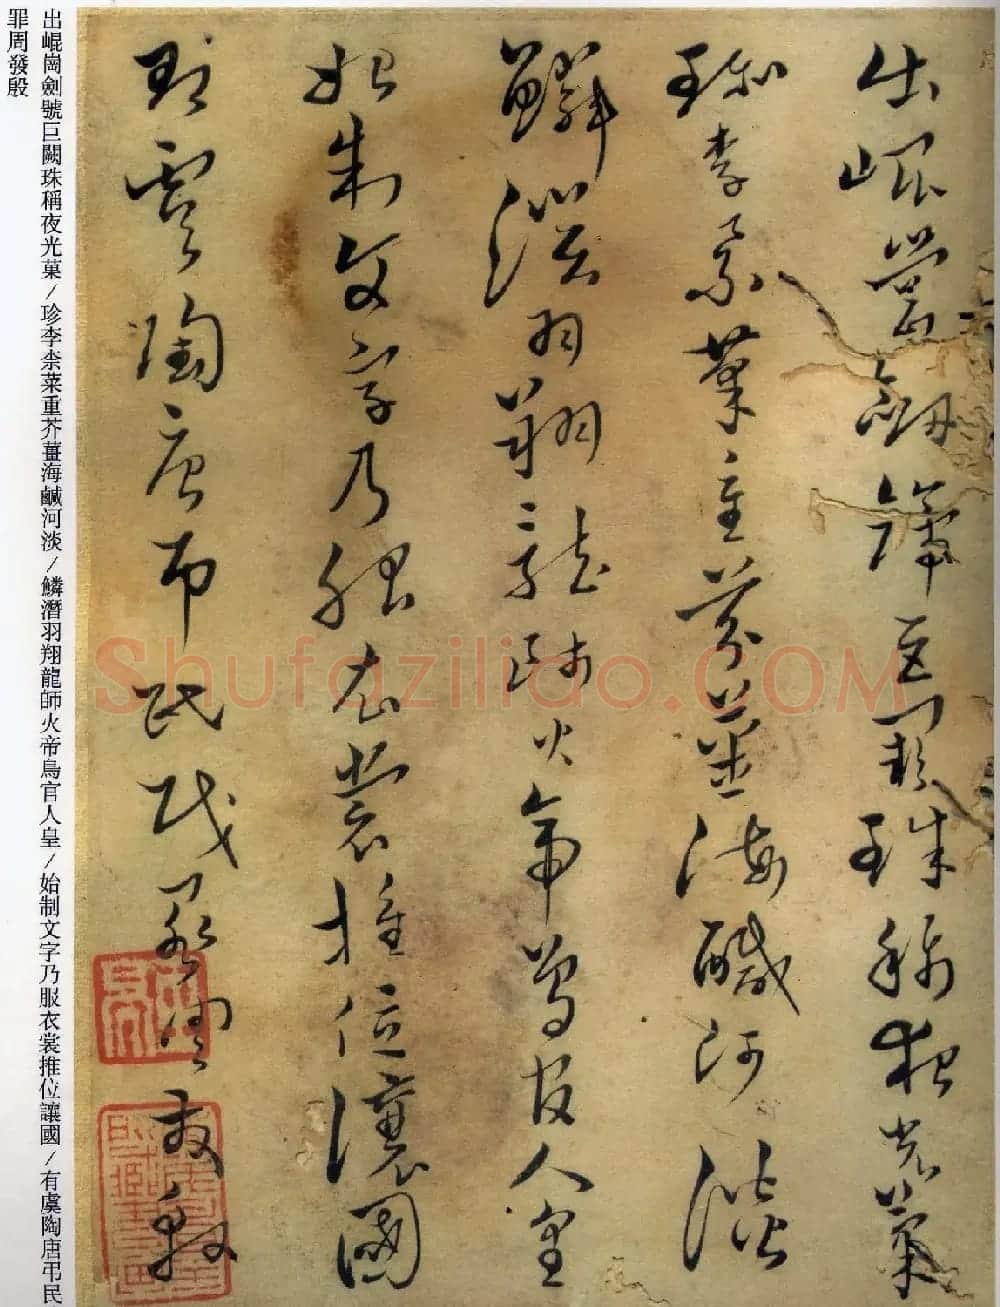 出崐崗劍號巨闕珠稱夜光菓
珍李柰菜重芥薑海醎河淡
鱗潛羽翔龍師火帝鳥官人皇
始制文字乃服衣裳推位讓國
有虞陶唐弔民伐罪周發殷
出崐崗劍號巨闕珠稱夜光菓/珍李柰菜重芥薑海鹹河淡/鱗潛羽翔龍師火帝鳥官人皇/始制文字乃服衣裳推位讓國/有虞陶唐弔民
罪周發殷
Shufaziliao.COM